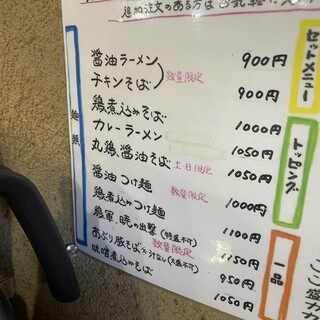 追加注文のある方はお気軽に
麺類
醤油ラーメン 900円
チキンそば 数量限定 900円
鶏煮込みそば 1000円
カレーラーメン 1050円
丸鶏醤油そば 土日限定 1050円
醤油つけ麺 1000円
鶏煮込みつけ麺 数量限定 1100円
鶏軍、暁の出撃(特盛不可) 1150円
あぶり豚そば※汁なし(大盛不可) 数量限定 950円
味噌煮込みそば 1050円
セットメニュー
トッピング
一品